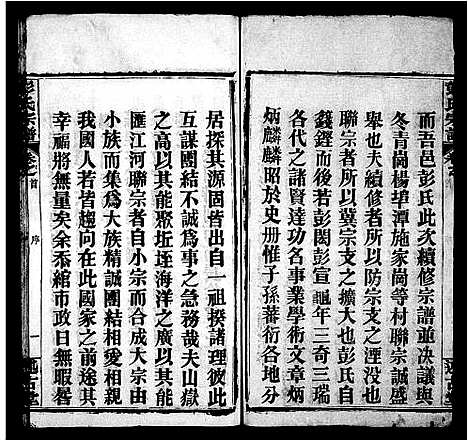 而吾邑彭氏此次續修宗譜並决議與
冬青崗楊埠潭施家崗等村聯宗誠盛
舉也夫修譜所以防宗支之湮沒而
聯宗者所以冀宗支之擴大也彭氏自
錢鏗而後若彭閎彭宣龜年三奇三瑞
各代之諸賢達本其事業學術文章炳
炳麟麟昭於史册惟子孫蕃衍各地分
居探其源固皆出自一祖揆諸理彼此
互謀團結不誠爲事之急務哉夫山嶽
以其能聚坵垤海洋之廣以其能
匯江河聯宗者自小宗而合成大宗由
小族而集爲大族精誠團結相愛相親
我國人若皆趨向在此國家之前途其
幸福將無量矣余忝綰市政日無暇晷
彭氏宗譜
卷之首
序
一
述古堂